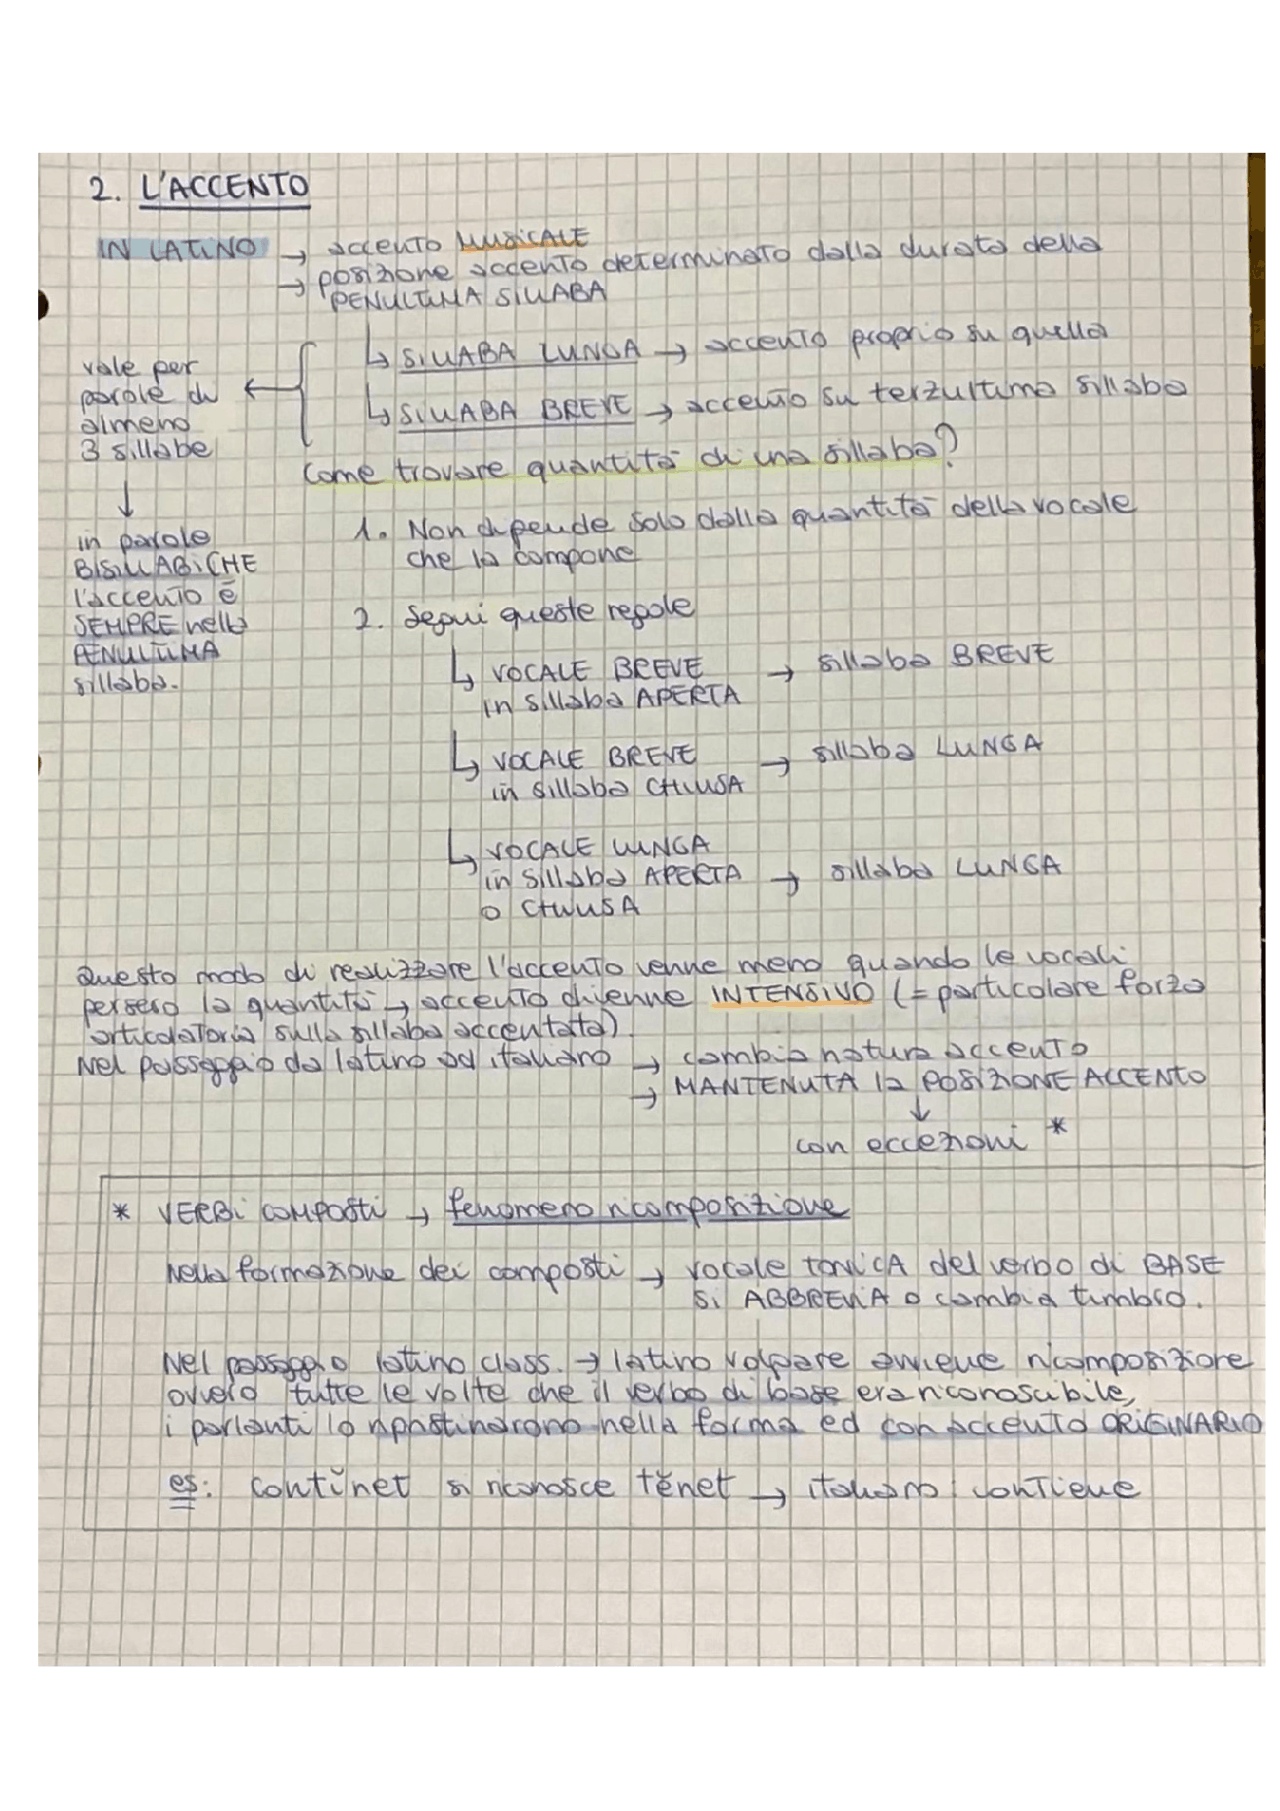 2. L'ACCENTO
IN LATINO → accento MUSICALE
→ posizione accento determinato dalla durata della
PENULTIMA SILLABA
↳ SILLABA LUNGA → accento proprio su quella
↳ SILLABA BREVE → accento su terzultima sillaba
vale per
parole di
almeno
3 sillabe
↓
in parole
BISILLABICHE
l'accento è
SEMPRE nella
PENULTIMA
sillaba.
Come trovare quantità di una sillaba?
1. Non dipende solo dalla quantità della vocale
che la compone
2. Segui queste regole
↳ VOCALE BREVE → sillaba BREVE
in sillaba APERTA
↳ VOCALE BREVE → sillaba LUNGA
in sillaba CHIUSA
↳ VOCALE LUNGA
in sillaba APERTA → sillaba LUNGA
o CHIUSA
Questo modo di realizzare l'accento venne meno quando le vocali
persero la quantità → accento divenne INTENSIVO (= particolare forza
articolatoria sulla sillaba accentata).
Nel passaggio da latino ad italiano → cambia natura accento
→ MANTENUTA la POSIZIONE ACCENTO
↓
con eccezioni *
* VERBI COMPOSTI → fenomeno ricomposizione
Nella formazione dei composti → vocale tonica del verbo di BASE
si ABBREVIA o cambia timbro.
Nel passaggio latino class. → latino volgare avviene ricomposizione
ovvero tutte le volte che il verbo di base era riconoscibile,
i parlanti lo ripristinarono nella forma ed con accento ORIGINARIO
es: contĭnet si riconosce tĕnet → italiano: contiene